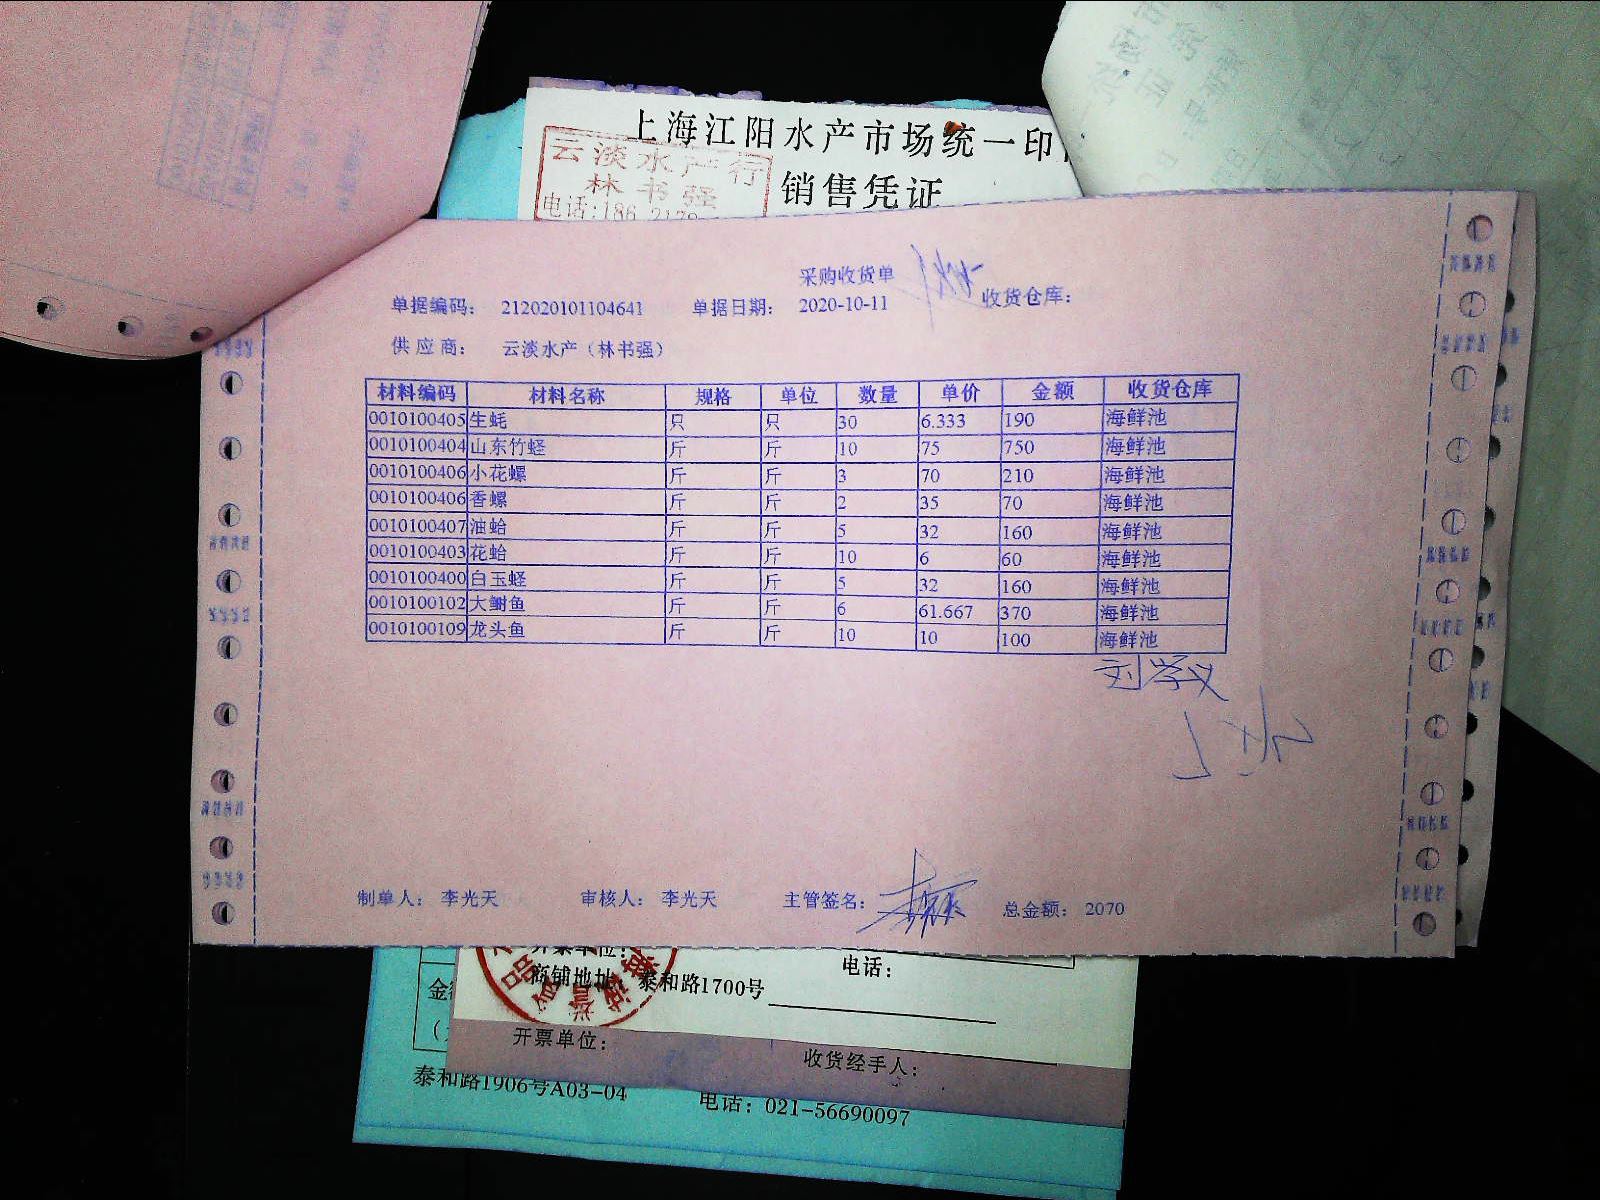 上海江阳水产市场统一印
销售凭证
云淡水产行
林书强
电话:186 2179
采购收货单
单据编码: 212020101104641 单据日期: 2020-10-11 收货仓库:
供应商: 云淡水产（林书强）
材料编码 材料名称 规格 单位 数量 单价 金额 收货仓库
0010100405 生蚝 只 只 30 6.333 190 海鲜池
0010100404 山东竹蛏 斤 斤 10 75 750 海鲜池
0010100406 小花螺 斤 斤 3 70 210 海鲜池
0010100406 香螺 斤 斤 2 35 70 海鲜池
0010100407 油蛤 斤 斤 5 32 160 海鲜池
0010100403 花蛤 斤 斤 10 6 60 海鲜池
0010100400 白玉蛏 斤 斤 5 32 160 海鲜池
0010100102 大鲥鱼 斤 斤 6 61.667 370 海鲜池
0010100109 龙头鱼 斤 斤 10 10 100 海鲜池
刘学义
制单人: 李光天 审核人: 李光天 主管签名: 总金额: 2070
开票单位:
电话:
商铺地址: 泰和路1700号
开票单位:
收货经手人:
泰和路1906号A03-04 电话: 021-56690097